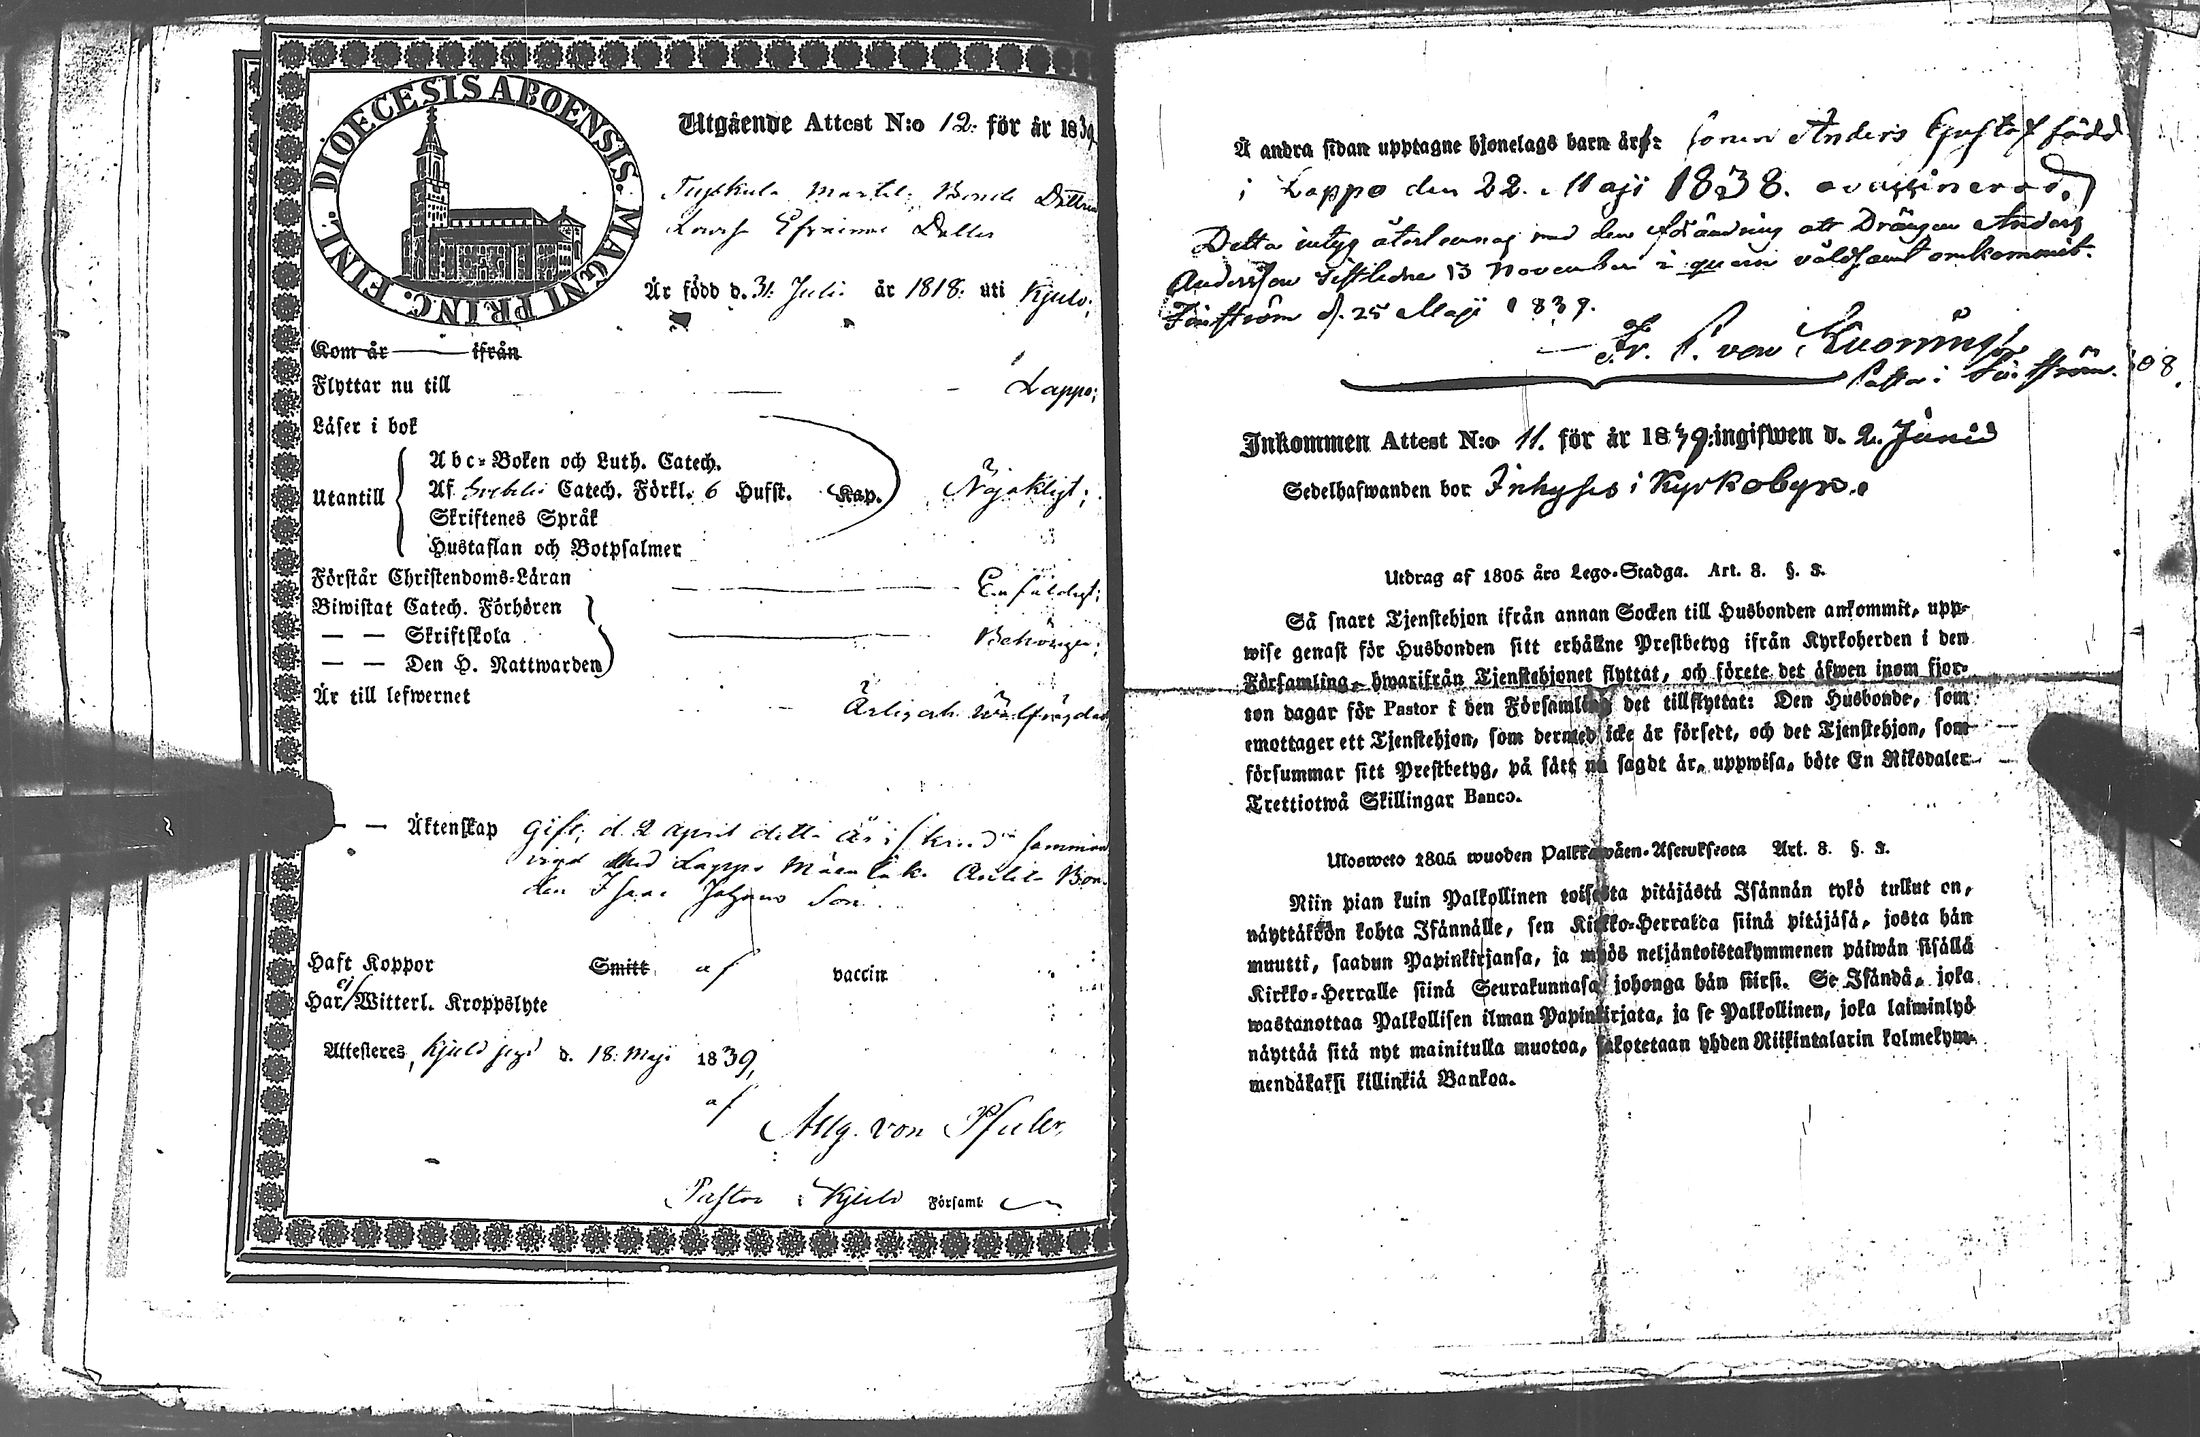 DIOECESIS ABOENSIS. MAGNI PRINC. FINL.
Utgående Attest N:o 12. för år 1839
Bonde
Är född d. 31. Juli. år 1818. uti Kjulo;
Kom år ifrån
Flyttar nu till Lappo;
Läser i bok
Utantill
Abc-Boken och Luth. Catech.
Af Catech. Förkl. 6 Hufst. Kap. Nöjaktigt;
Skriftenes Språk
Hustaflan och Botpsalmer
Förstår Christendoms-Läran Enfäldigt;
Biwistat Catech. Förhören
— — Skriftskola Behörigen;
— — Den H. Nattwarden
Är till lefwernet Ärlig och Wälfrägdad
— — Äktenskap Gift; d. 2 April detta år
med Lappo Bon-
den Isaac Johans Son
Haft Koppor Smitt af vaccin
Har ej Witterl. Kroppslyte
Attesteres, Kjulo d. 18. Maji 1839,
af
Aug. von Pfaler,
Pastor i Kjulo Församl:
Å andra sidan upptagne hjonelags barn är: sonen Anders Gustaf född
i Lappo den 22. Maji 1838. ovaxinerad.
Detta intyg återlemnas med den förändring att Drängen Anders
Andersson sistledne 13 November i våldsamt omkommit.
Finström d. 25 Maji 1839.
Fr. P. von
Pastor i Finström. 108.
Inkommen Attest N:o 11. för år 1839. ingifwen d. 2. Junii
Sedelhafwanden bor Inhyses i Kyrkobyn.
Utdrag af 1805 års Lego-Stadga. Art. 8. §. 3.
Så snart Tjenstehjon ifrån annan Socken till Husbonden ankommit, upp-
wise genast för Husbonden sitt erhållne Prestbetyg ifrån Kyrkoherden i den
Församling, hwarifrån Tjenstehjonet flyttat, och förete det äfwen inom fjor-
ton dagar för Pastor i den Församling det tillflyttat: Den Husbonde, som
emottager ett Tjenstehjon, som dermed icke är försedt, och det Tjenstehjon, som
försummar sitt Prestbetyg, på sätt nu sagdt är, uppwisa, böte En Riksdaler
Trettiotwå Skillingar Banco.
Ulosweto 1805 wuoden Palkkawäen-Asetuksesta Art. 8. §. 3.
Niin pian kuin Palkollinen toisesta pitäjästä Isännän tykö tullut on,
näyttäkön kohta Isännälle, sen Kirkko-Herralda siinä pitäjäsä, josta hän
muutti, saadun Papinkirjansa, ja myös neljäntoistakymmenen päiwän sisällä
Kirkko-Herralle siinä Seurakunnasa johonga hän siirsi. Se Isändä, joka
wastanottaa Palkollisen ilman Papinkirjata, ja se Palkollinen, joka laiminlyö
näyttää sitä nyt mainitulla muotoa, sakotetaan yhden Riikintalarin kolmekym-
mendäkaksi killinkiä Bankoa.